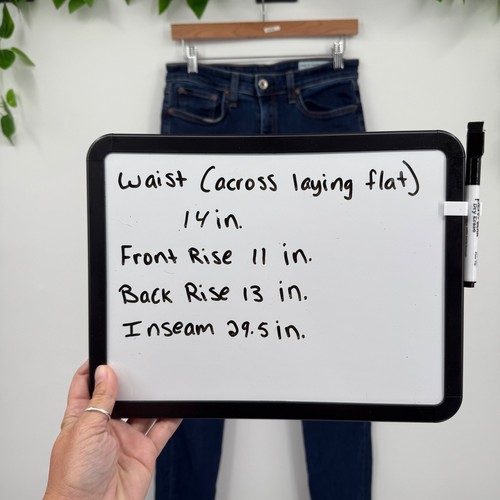 Waist (across laying flat)
14 in.
Front Rise 11 in.
Back Rise 13 in.
Inseam 29.5 in.